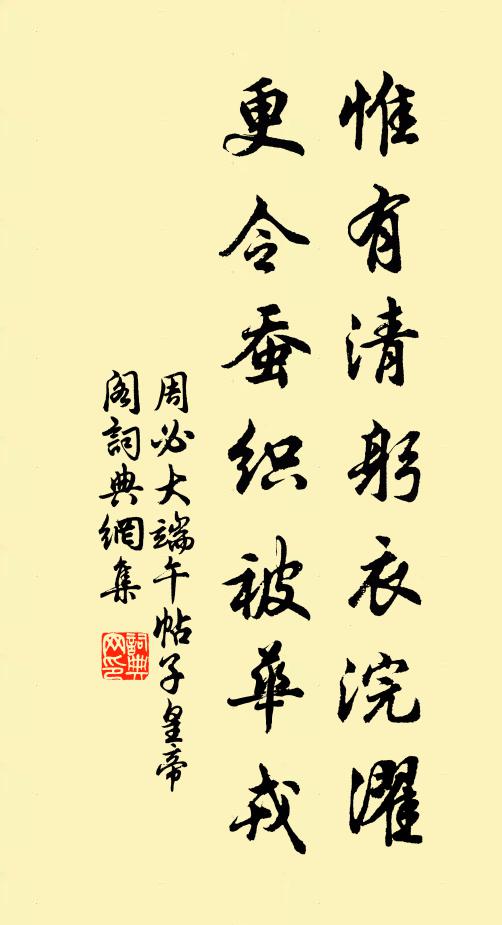 惟有清躬衣浣濯
更令蚕织被華戎
周必大端午帖子皇帝
阁詞典網集
詞典
网印